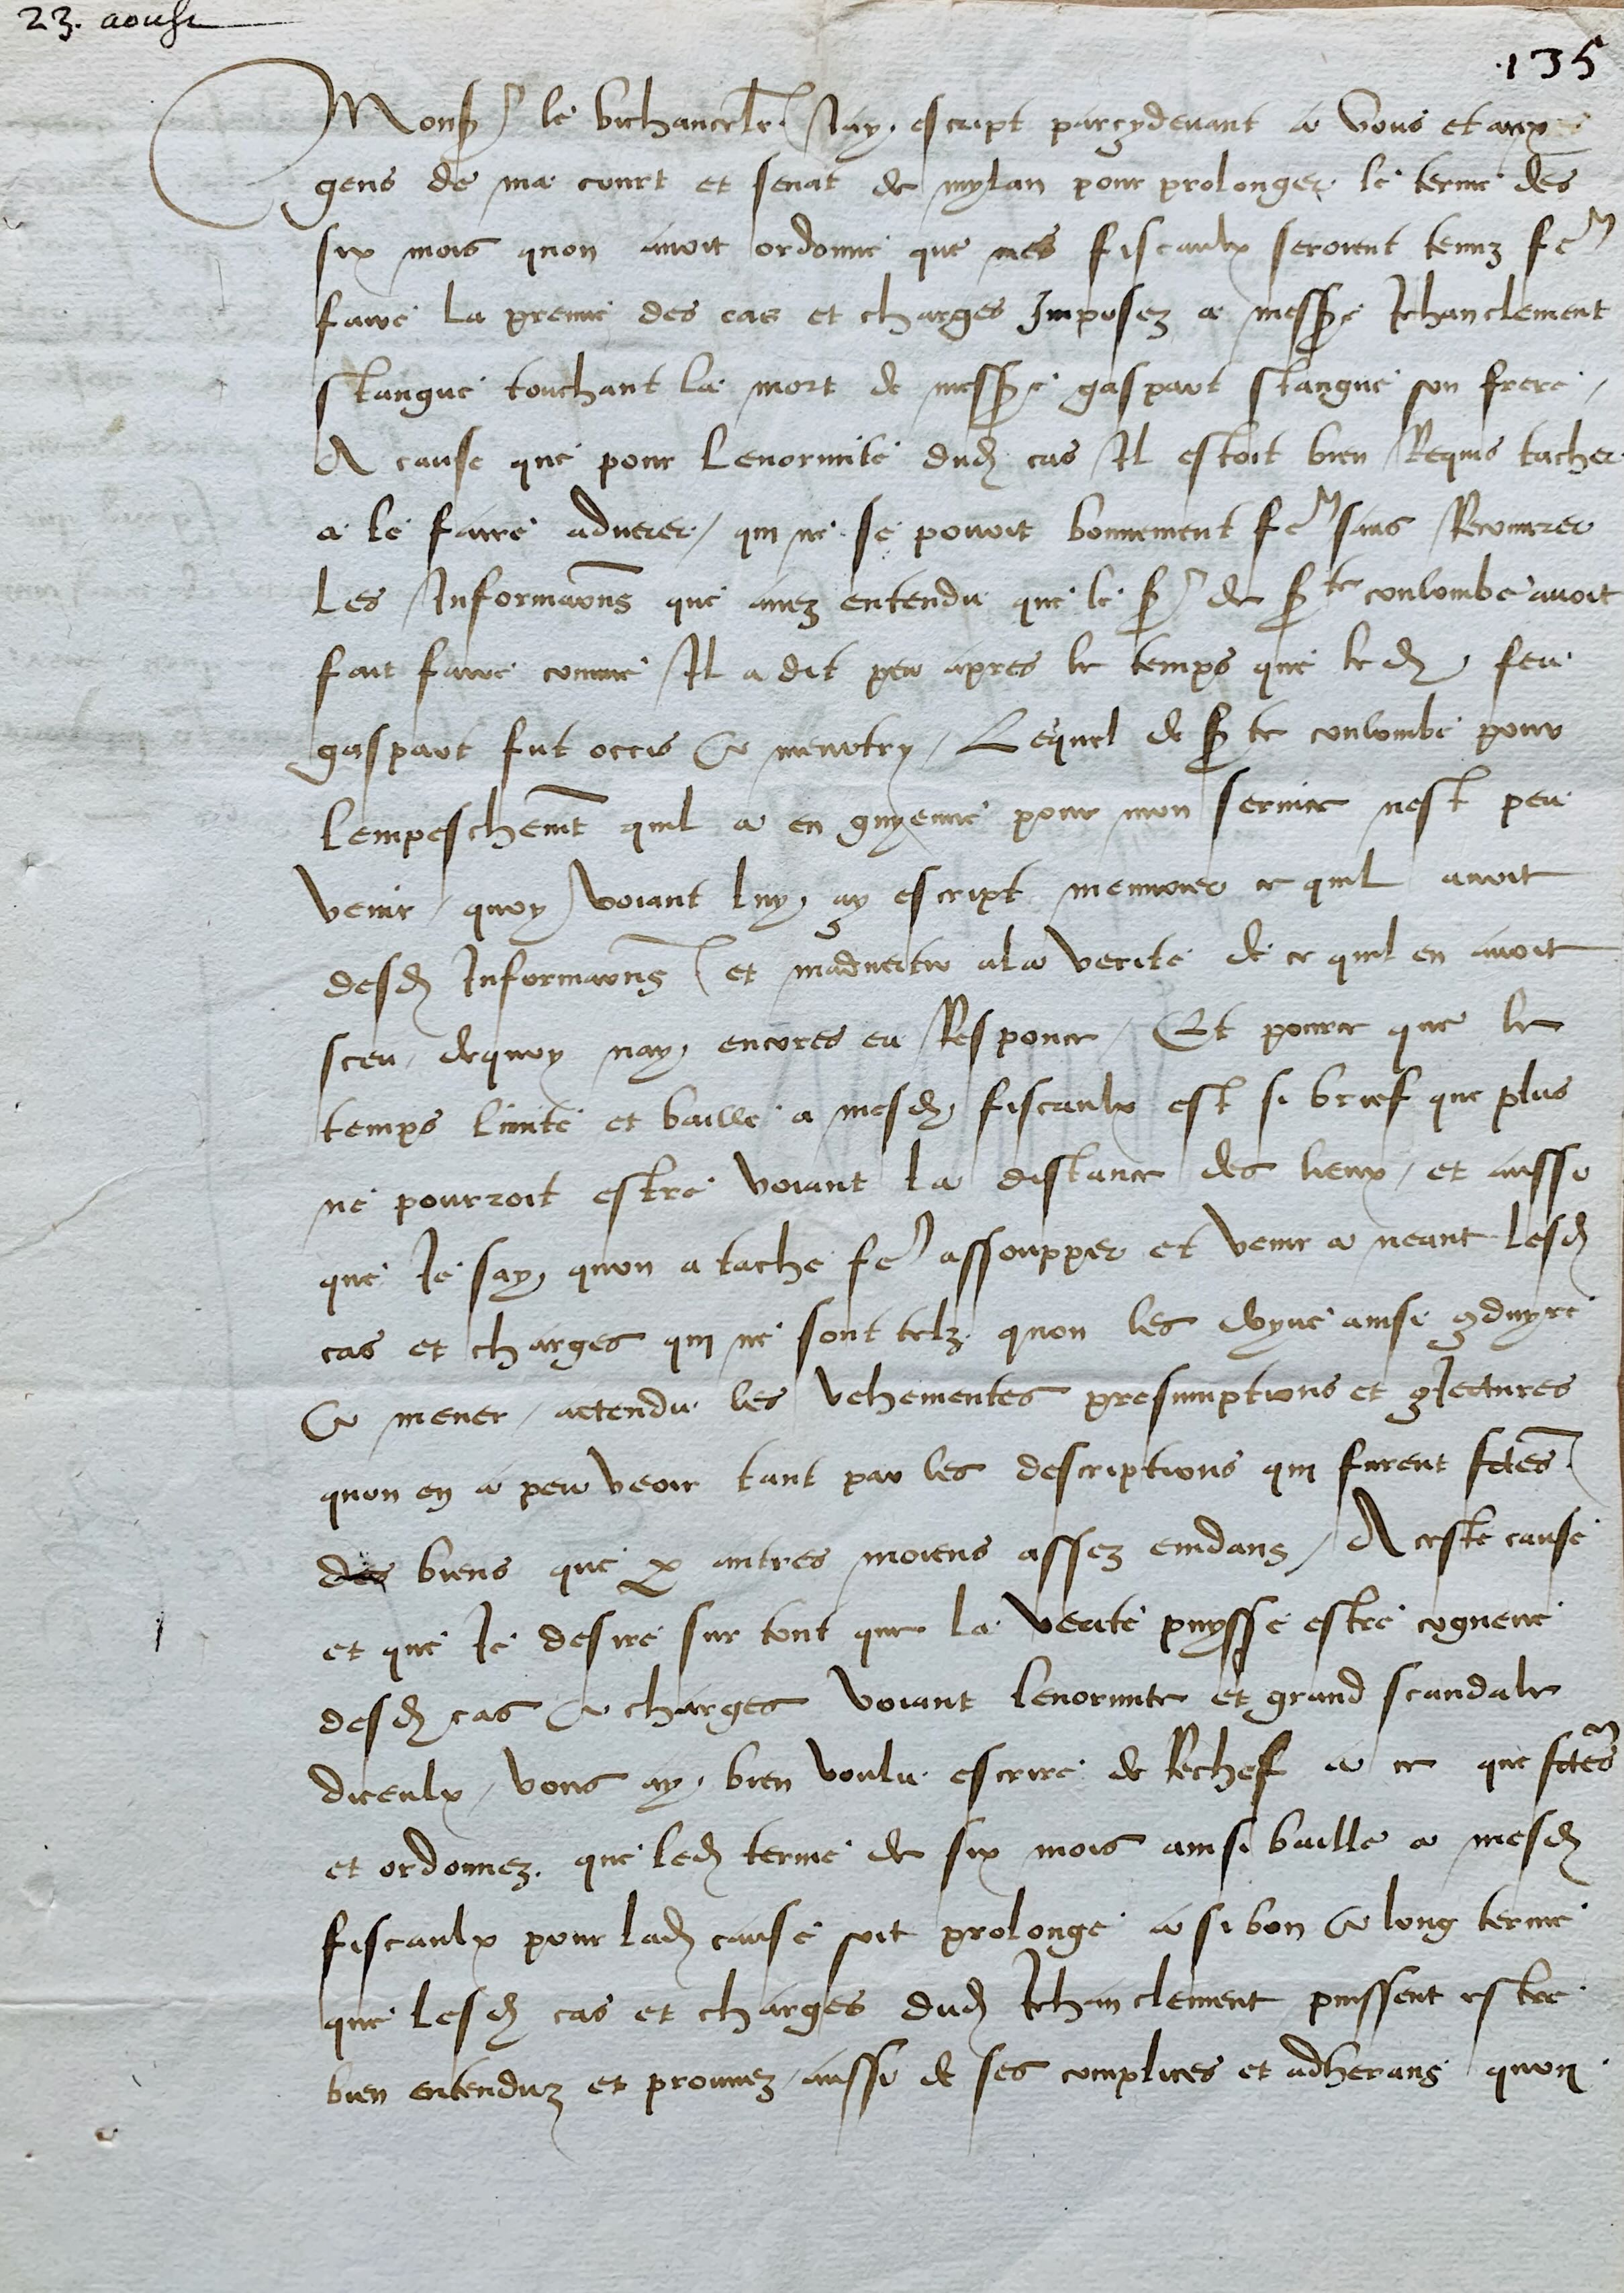 23. aoust
.135
Monsr le vichancelr Jay escript parcydevant a vous et aux
gens de ma court et senat de mylan pour prolonger le terme des
six mois quon avoit ordonne que mes fiscaulx seroient tenuz fe
faire la preuve des cas et charges Imposez a messe Jehanclement
stangue touchant la mort de messe gaspart stangue son frere /
A cause que pour lenormite dud cas Il estoit bien Requis tacher
a le faire adverer / qui ne se povoit bonnement fe sans Recouvrer
les Informaons que avez entendu que le sr de ste coulombe avoit
fait faire comme Il a dit peu apres le temps que led feu
gaspart fut occis & meurtry / Lequel de ste coulombe pour
lempeschemt quil a en guyenne pour mon service nest peu
venir / quoy voiant luy ay escript menvoier ce quil avoit
desd Informaons et madvertir ala verite de ce quil en avoit
sceu / dequoy nay encores eu Responce / Et pource que le
temps limite et baille a mesd fiscaulx est si brief que plus
ne pourroit estre voiant la distance des lieux / et aussi
que Je say quon a tache fe assoupper et venir a neant lesd
cas et charges qui ne sont telz quon les doyve ainsi 9duyre
& mener / actendu les vehementes presumptions et 9Jectures
quon en a peu veoir tant par les descriptions qui furent fctes
des biens que p autres moiens assez evidans / A ceste cause
et que Je desire sur tout que la verite puysse estre cogneue
desd cas & charges voiant lenormite et grand scandale
diceulx / vous ay bien voulu escrire de Rechef a ce que fctes
et ordonnez que led terme de six mois ainsi baille a mesd
fiscaulx pour lad cause soit prolonge a si bon & long terme
que lesd cas et charges dud Jehan clement puissent estre
bien entenduz et prouvez / aussi de ses complices et adherans quon